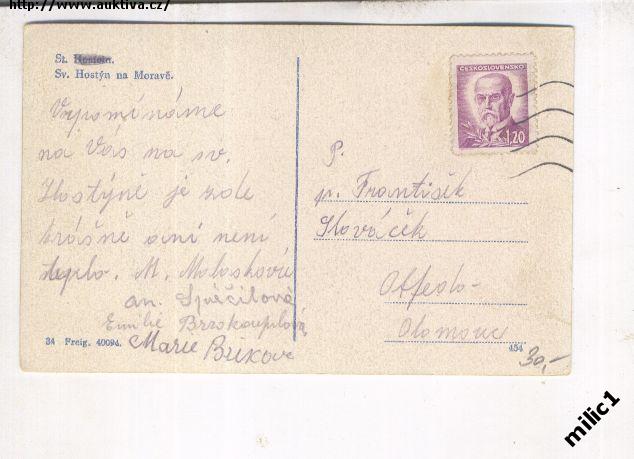 http://www.auktiva.cz/
St.
Sv. Hostýn na Moravě.
Vzpomínáme
na Vás na sv.
Hostýně je zde
krásně ani není
teplo. M. Moloskové
an. Spáčilová
Emilie
Marie Brikove
34 Freig. 40094.
ČESKOSLOVENSKO
1.20
P.
p. František
Slováček
Olomouc
454
30,-
milic1